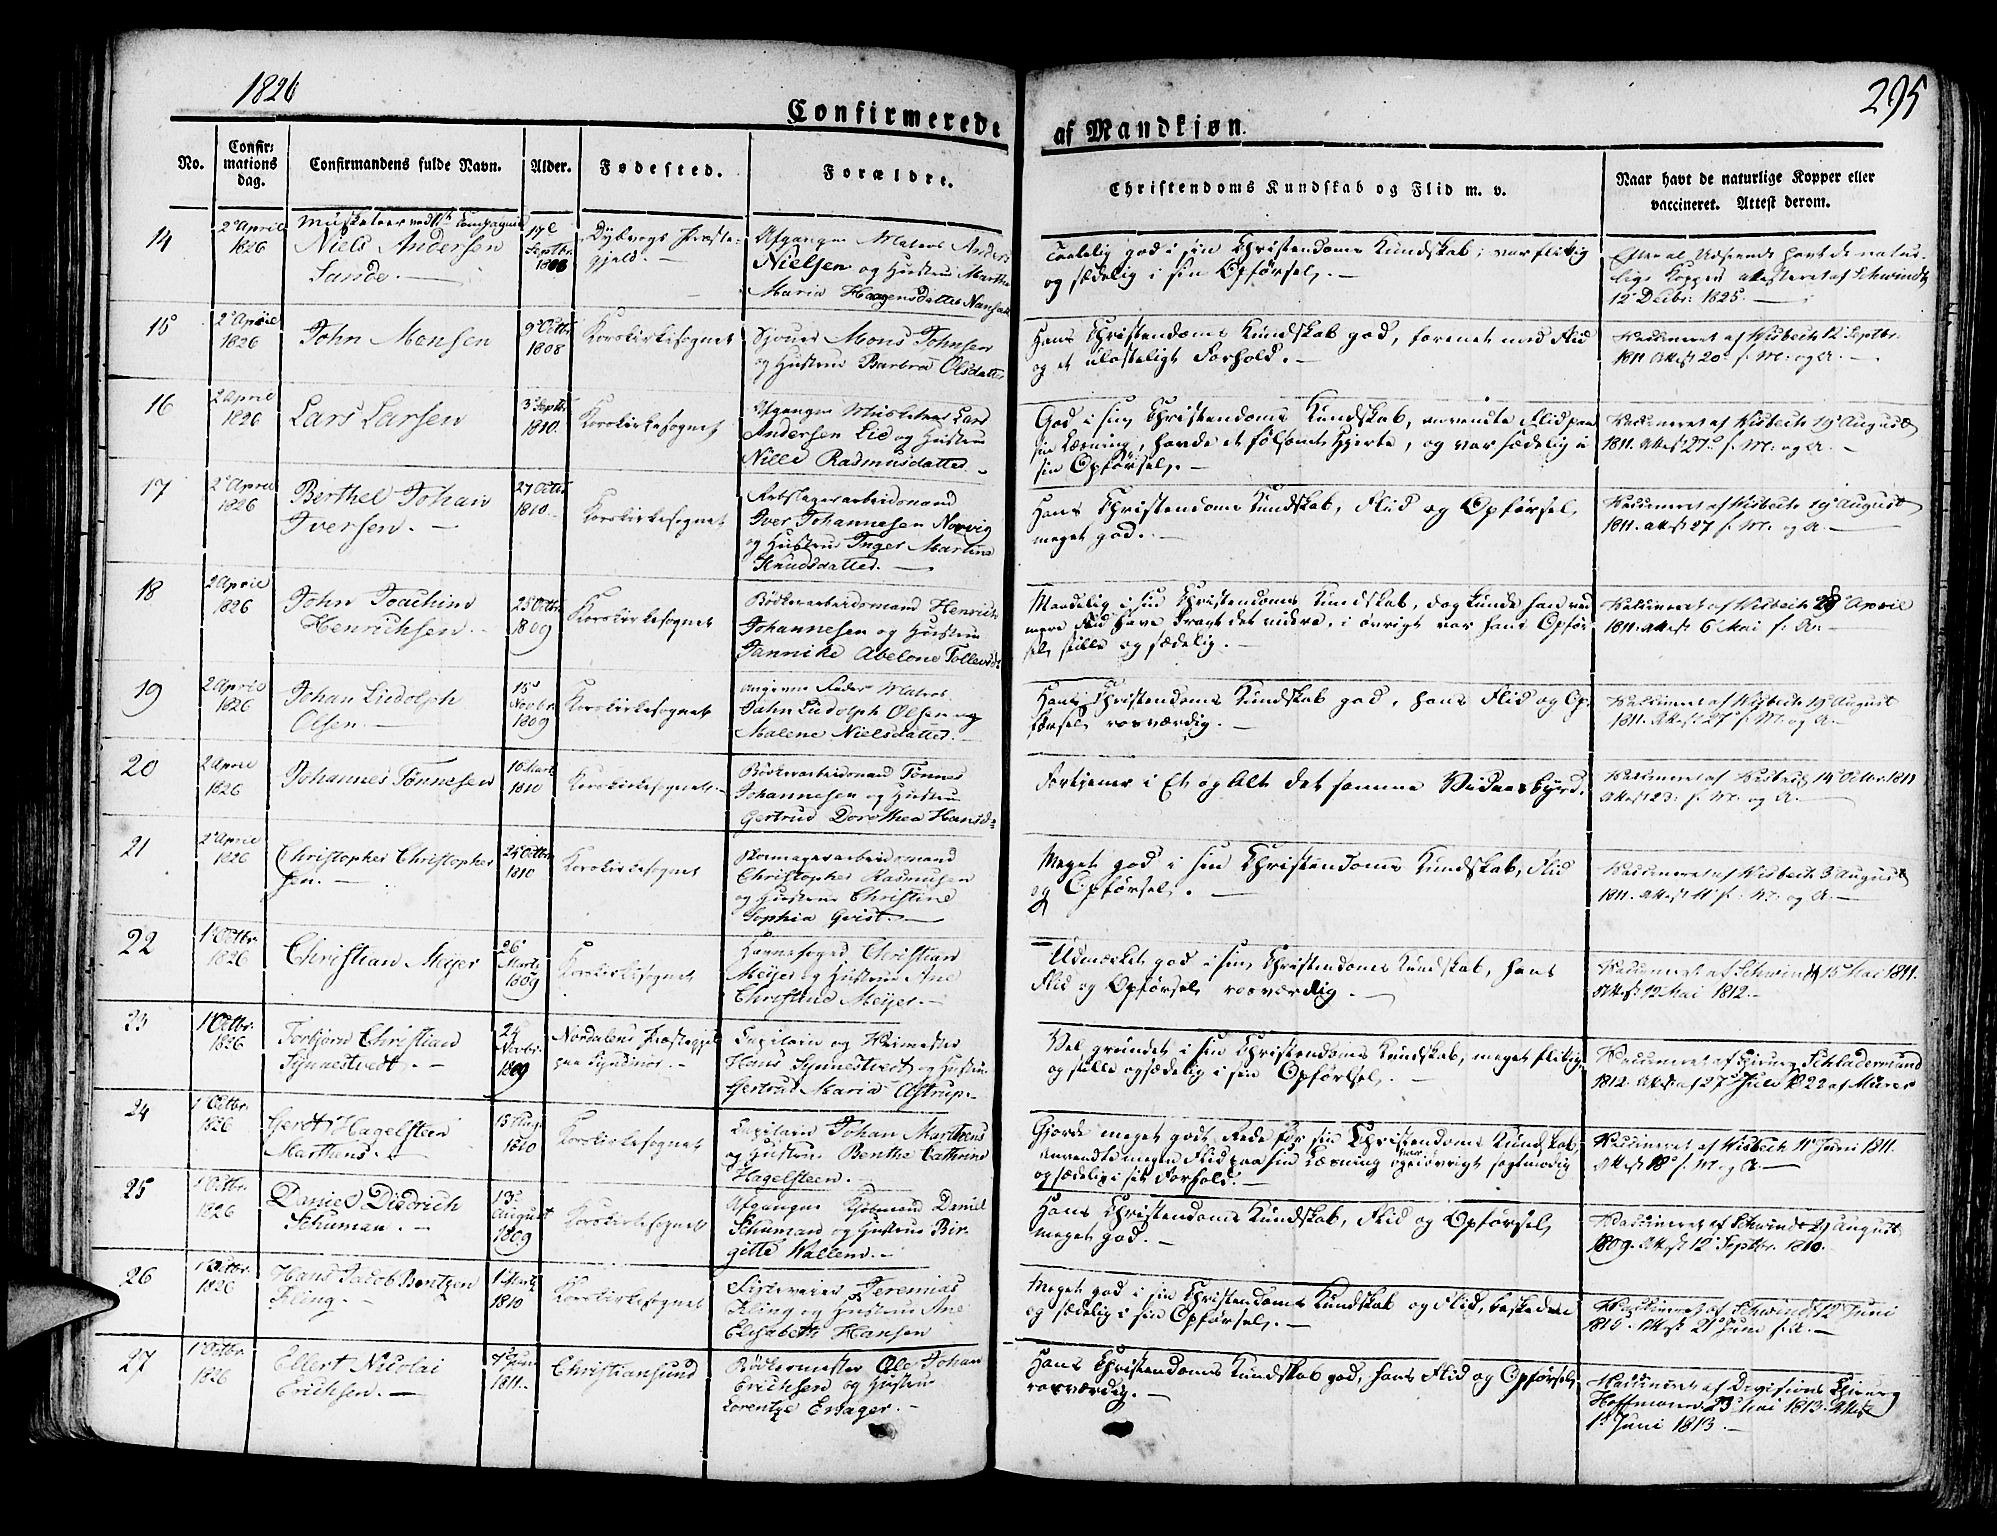 1826
295
Confirmerede af Mandkjøn.
No. Confirmations dag. Confirmandens fulde Navn. Alder. Fødested. Forældre. Christendoms Kundskab og Flid m. v. Naar havt de naturlige Kopper eller vaccineret. Attest derom.
14 2 April 1826 Niels Andersen Sande. 17 Septbr. 1808 Dybvogs Præstegjeld. Afgangne Matros Anders Nielsen og Hustru Marthe Maria Haagensdatter Taalelig god i sin Christendoms Kundskab; var flittig og sædelig i sin Opførsel. Efter al Udseende havt de naturlige Kopper, attesteret af Schwindt 12 Decbr. 1825.
15 2 April 1826 John Monsen 9 Octbr. 1808 Korskirkesognet Mons Johnsen og Hustru Barbra Olsdatter Hans Christendoms Kundskab god, forenet med Flid og et ulasteligt Forhold. Vaccineret af Wisbech 12 Septbr. 1811. Attest 20 s. M. og A.
16 2 April 1826 Lars Larsen 3 Septbr. 1810. Korskirkesognet Afgangne Lars Andersen Lie og Hustru Nille Rasmusdatter. God i sin Christendoms Kundskab, anvendte Flid paa sin Læsning, havde et følsomt Hjerte, og var sædelig i sin Opførsel. Vaccineret af Wisbech 19 August 1811. Attest 27 s. M. og A.
17 2 April 1826 Berthel Johan Iversen. 27 Octbr. 1810. Korskirkesognet Arbeidsmand Iver Johannesen Norvig og Hustru Inger Martine Knudsdatter. Hans Christendoms Kundskab, Flid og Opførsel meget god. Vaccineret af Wisbech 19 August 1811. Attest 27 s. M. og A.
18 2 April 1826 John Joachim Henrichsen. 25 Octbr. 1809 Korskirkesognet Bødkerarbeidsmand Henrich Johannesen og Hustru Jannike Abelone Tollevsd. Maadelig i sin Christendoms Kundskab, dog kunde han ved mere Flid have bragt det videre, i øvrigt var hans Opførsel stille og sædelig. Vaccineret af Wisbech 28 April 1811. Attest 6 Mai s. A.
19 2 April 1826 Johan Ludolph Olsen. 15 Novbr. 1809 Korskirkesognet Angivne Fader Matros Jahn Ludolph Olsen og Malene Nielsdatter. Hans Christendoms Kundskab god, hans Flid og Opførsel rosværdig. Vaccineret af Wisbech 19 August 1811. Attest 27 s. M. og A.
20 2 April 1826 Johannes Tønnesen 10 Marts 1810 Korskirkesognet Bødkerarbeidsmand Tønnes Johannesen og Hustru Gertrud Dorothea Hansd. Fortjener i Et og Alt det samme Vidnesbyrd. Vaccineret af Wisbech 14 Octbr. 1811 Attest 23 s. M. og A.
21 2 April 1826 Christopher Christophersen. 25 Octbr. 1810 Korskirkesognet Skomagerarbeidsmand Christopher Rasmusen og Hustrue Christine Sophia Qvist. Meget god i sin Christendoms Kundskab, Flid og Opførsel. Vaccineret af Wisbech 3 August 1811. Attest 11 s. M. og A.
22 1 Octbr. 1826 Christian Meijer 26 Marts 1809 Korskirkesognet Havnefoged Christian Meijer og Hustru Ane Christine Meijer. Udmærket god i sin Christendoms Kundskab, hans Flid og Opførsel rosværdig. Vaccineret af Schwindt 15 Mai 1811. Attest 12 Mai 1812.
23 1 Octbr. 1826 Torbjørn Christian Synnestvedt. 24 Novbr. 1809 Nordalens Præstegjeld paa Syndmør. Capitain og Hans Synnestvedt og Hustru Gertrud Maria Astrup. Vel grundet i sin Christendoms Kundskab, meget flittig og stille og sædelig i sin Opførsel. 1812. Attest af 27 Juli 1822 af
24 1 Octbr. 1826 Gerdt Hagelsteen Marthens. 1810 Korskirkesognet Capitain Johan Marthens og Hustru Benthe Cathrine Hagelsteen. Gjorde meget godt Rede for sin Christendoms Kundskab, anvendte megen Flid paa sin Læsning og var iøvrigt sagtmodig og sædelig i sit Forhold. Vaccineret af Wisbech 11 Juni 1811. Attest 18 s. M. og A.
25 1 Octbr. 1826 Daniel Didrich Schuman. 13 August 1809 Korskirkesognet Afgangne Kjøbmand Daniel Schuman og Hustru Birgitte Wallem. Hans Christendoms Kundskab, Flid og Opførsel meget god. Vaccineret af Schwindt 29 August 1809. Attest 12 Septbr. 1810.
26 1 Octbr. 1826 Hans Jacob Berntzen Kling. 1 Marts 1810 Korskirkesognet Jeremias Kling og Hustru Ane Elisabeth Hansen Meget god i sin Christendoms Kundskab og Flid, beskeden og sædelig i sin Opførsel. Vaccineret af Schwindt 12 Juni 1810. Attest 21 Juni s. A.
27 1 Octbr. 1826 Ellert Nicolai Erichsen. 1811. Christiansund Bødkermester Ole Johan Erichsen og Hustru Lorentze Ersager. Hans Christendoms Kundskab god, hans Flid og Opførsel rosværdig. Vaccineret af Divisions Chirurg Hoffmann 23 Mai 1813. Attest 1 Juni 1813.